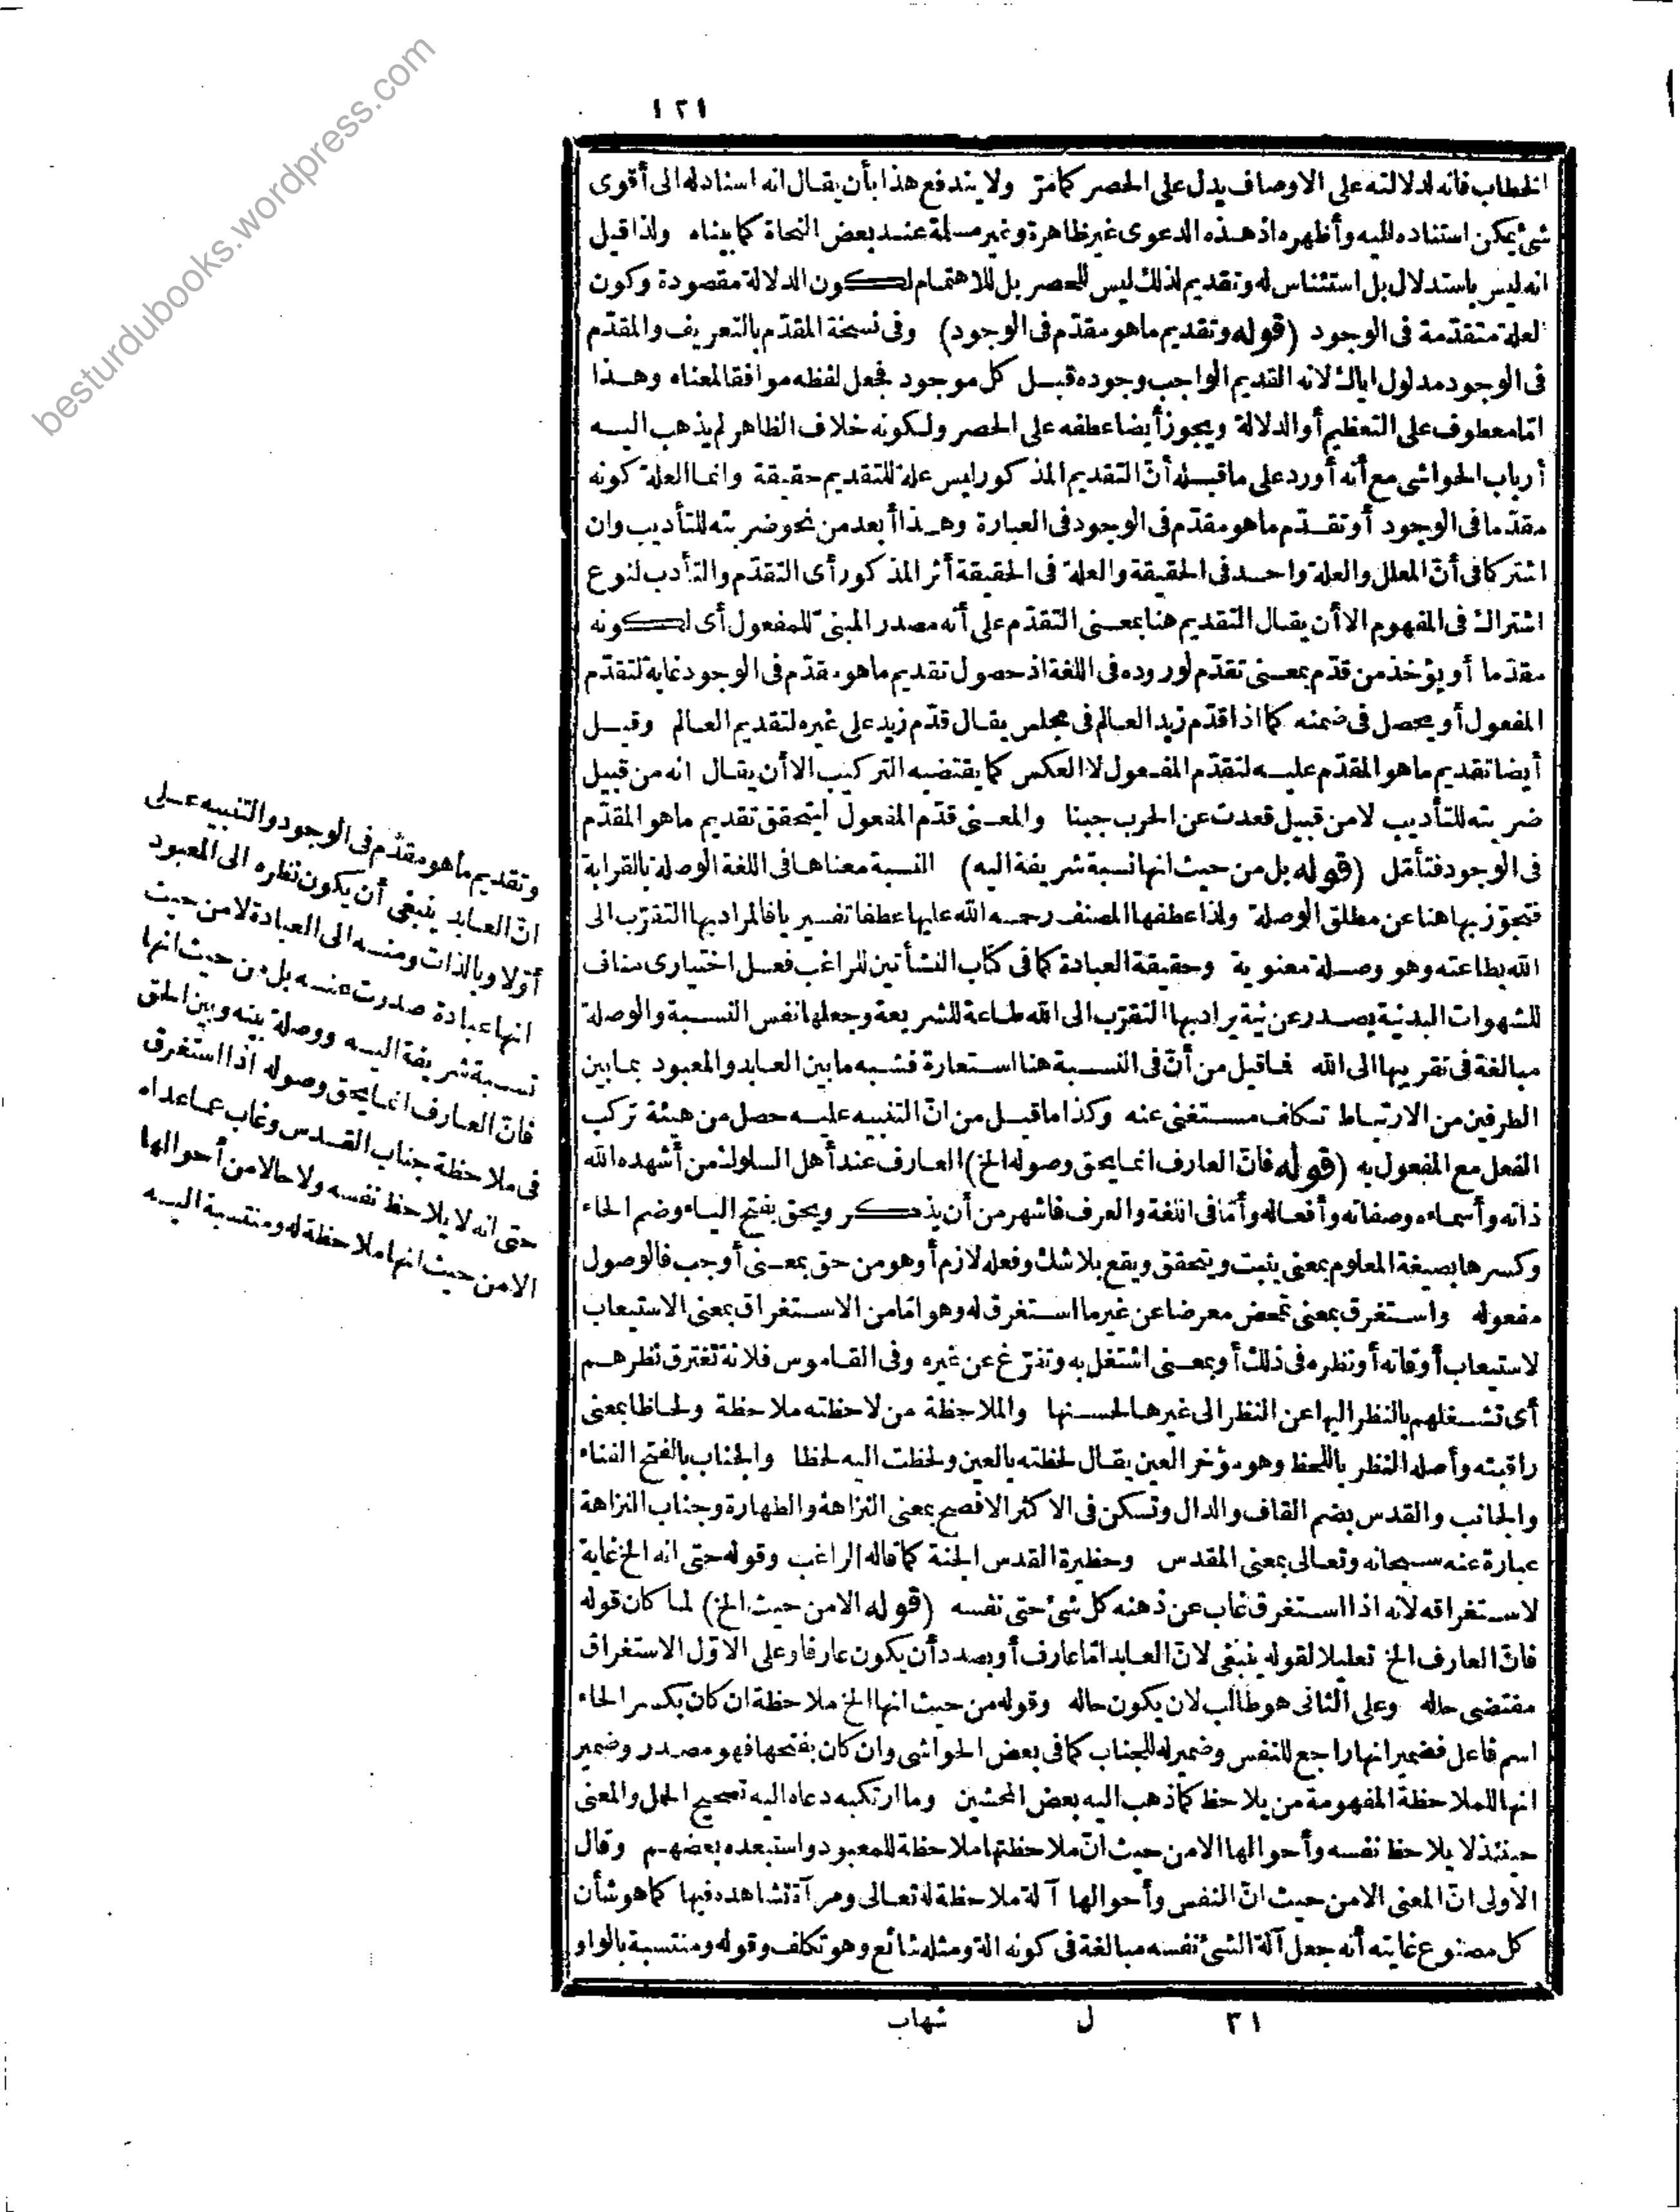 ١٢١
الخطاب فانه لدلالته على الاوصاف يدل على الحصر كمامرّ ولا يندفع هذا بأن يقال انه استنادله الى أقوى
شئ يمكن استناده اليه وأظهره اذ هذه الدعوى غير ظاهرة وغير مسلمة عند بعض النحاة كما بيناه ولذا قيل
انه ليس باستدلال بل استئناس له وتقديم لذلك ليس للحصر بل للاهتمام لكون الدلالة مقصودة وكون
العلة متقدّمة فى الوجود (قوله وتقديم ماهو مقدّم فى الوجود) وفى نسخة المقدّم بالتعريف والمقدّم
فى الوجود مدلول اياك لانه القديم الواجب وجوده قبل كل موجود فجعل لفظه موافقا لمعناه وهذا
امّا معطوف على التعظيم أو الدلالة ويجوز أيضا عطفه على الحصر ولكونه خلاف الظاهر لم يذهب اليه
أرباب الحواشى مع أنه أورد على ماقبله أنّ التقديم المذكور ليس علة للتقديم حقيقة وانما العلة كونه
مقدّما فى الوجود أو تقدّم ماهو مقدّم فى الوجود فى العبارة وهذا أبعد من نحو ضربته للتأديب وان
اشتركا فى أنّ المعلل والعلة واحد فى الحقيقة والعلة فى الحقيقة أثر المذكور أى التقدّم والتأدب لنوع
اشتراك فى المفهوم الا أن يقال التقديم هنا بمعنى التقدّم على أنه مصدر المبنىّ للمفعول أى لكونه
مقدّما أو يؤخذ من قدّم بمعنى تقدّم لوروده فى اللغة اذ حصول تقديم ماهو مقدّم فى الوجود غاية لتقدّم
المفعول أو يحصل فى ضمنه كما اذا قدّم زيد العالم فى مجلس يقال قدّم زيد على غيره لتقديم العالم وقيل
أيضا تقديم ماهو المقدّم عليه لتقدّم المفعول لا العكس كما يقتضيه التركيب الا أن يقال انه من قبيل
ضربته للتأديب لا من قبيل قعدت عن الحرب جبنا والمعنى قدّم المفعول ليتحقق تقديم ماهو المقدّم
فى الوجود فتأمّل (قوله بل من حيث انها نسبة شريفة اليه) النسبة معناها فى اللغة الوصلة بالقرابة
فتجوّز بها هنا عن مطلق الوصلة ولذا عطفها المصنف رحمه الله عليها عطفا تفسيريا فالمراد بها التقرّب الى
الله بطاعته وهو وصلة معنوية وحقيقة العبادة كما فى كتاب النشأتين للراغب فعل اختيارى مناف
للشهوات البدنية يصدر عن نية يراد بها التقرّب الى الله طاعة للشريعة وجعلها نفس النسبة والوصلة
مبالغة فى تقريبها الى الله فما قيل من أنّ فى النسبة هنا استعارة فشبه مابين العابد والمعبود بمابين
الطرفين من الارتباط تكلف مستغنى عنه وكذا ماقيل من انّ التنبيه عليه حصل من هيئة تركب
الفعل مع المفعول به (قوله فانّ العارف انما يحق وصوله الخ) العارف عند أهل السلوك من أشهده الله
ذاته وأسماءه وصفاته وأفعاله وأمّا فى اللغة والعرف فأشهر من أن يذكر ويحق بفتح الياء وضم الحاء
وكسرها بصيغة المعلوم بمعنى يثبت ويتحقق ويقع بلا شك وفعله لازم أو هو من حق بمعنى أوجب فالوصول
مفعوله واستغرق بمعنى تمحض معرضا عن غير ما استغرق له وهو امّا من الاستغراق بمعنى الاستيعاب
لاستيعاب أوقاته أو نظره فى ذلك أو بمعنى اشتغل به وتفرّغ عن غيره وفى القاموس فلانة تغترق نظرهم
أى تشغلهم بالنظر اليها عن النظر الى غيرها لحسنها والملاحظة من لاحظته ملاحظة ولحاظا بمعنى
راقبته وأصله النظر باللحظ وهو مؤخر العين يقال لحظته بالعين ولحظت اليه لحظا والجناب بالفتح الفناء
والجانب والقدس بضم القاف والدال وتسكن فى الاكثر الافصح بمعنى النزاهة والطهارة وجناب النزاهة
عبارة عنه سبحانه وتعالى بمعنى المقدس وحظيرة القدس الجنة كما قاله الراغب وقوله حتى انه الخ غاية
لاستغراقه لانه اذا استغرق غاب عن ذهنه كل شئ حتى نفسه (قوله الا من حيث الخ) لما كان قوله
فانّ العارف الخ تعليلا لقوله ينبغى لانّ العابد امّا عارف أو بصدد أن يكون عارفا وعلى الاوّل الاستغراق
مقتضى حاله وعلى الثانى هو طالب لان يكون حاله وقوله من حيث انها الخ ملاحظة ان كان بكسر الحاء
اسم فاعل فضمير انها راجع للنفس وضمير له للجناب كما فى بعض الحواشى وان كان بفتحها فهو مصدر وضمير
انها للملاحظة المفهومة من يلاحظ كما ذهب اليه بعض المحشين وما ارتكبه دعاه اليه تصحيح الحمل والمعنى
حينئذ لا يلاحظ نفسه وأحوالها الا من حيث انّ ملاحظتها ملاحظة للمعبود واستبعده بعضهم وقال
الاولى انّ المعنى الا من حيث انّ النفس وأحوالها آلة ملاحظة له تعالى ومرآة تشاهده فيها كما هو شأن
كل مصنوع غايته أنه جعل آلة الشئ نفسه مبالغة فى كونه آلة ومثله شائع وهو تكلف وقوله ومنتسبة بالواو
وتقديم ماهو مقدّم فى الوجود والتنبيه على
انّ العابد ينبغى أن يكون نظره الى المعبود
أوّلا وبالذات ومنه الى العبادة لا من حيث
انها عبادة صدرت عنه بل من حيث انها
نسبة شريفة اليه ووصلة بينه وبين الحق
فانّ العارف انما يحق وصوله اذا استغرق
فى ملاحظة جناب القدس وغاب عما عداه
حتى انه لا يلاحظ نفسه ولا حالا من أحوالها
الا من حيث انها ملاحظة له ومنتسبة اليه
٣١ ل شهاب
besturdubooks.wordpress.com